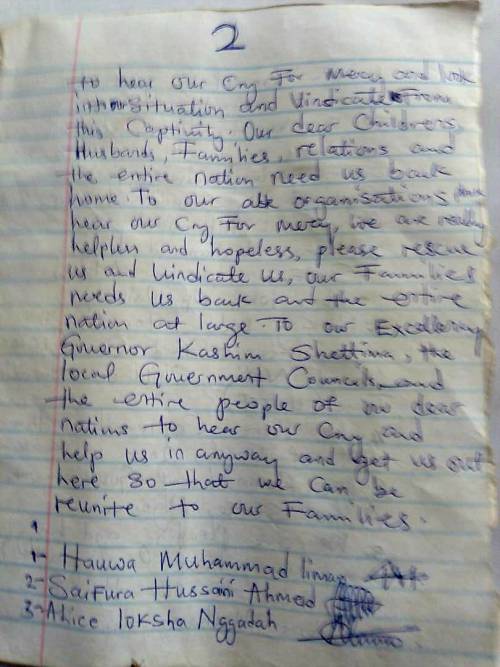 2
to hear our Cry For Mercy and look
into our Situation and Vindicate From
this Captivity. Our dear Childrens,
Husbands, Families, relations and
the entire nation need us back
home. To our organisations
hear our Cry For mercy, we are really
helpless and hopeless, please rescue
us and Vindicate us, our Fammilies
needs us back and the entire
nation at large. To our Excellency
Governor Kashim Shettima, the
local Government Councils, and
the entire people of our dear
nations to hear our Cry and
help us in anyway and get us out
here so that we can be
reunite to our Families.
1
1- Hauwa Muhammad liman
2- Saifura Hussaini Ahmed
3- Alice loksha Nggadah